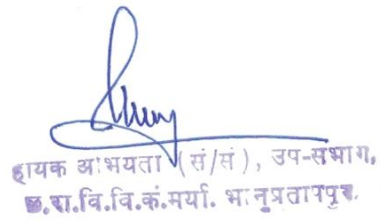 हायक अभियंता (सं/सं), उप-संभाग,
छ.रा.वि.वि.कं.मर्या. भानुप्रतापपुर